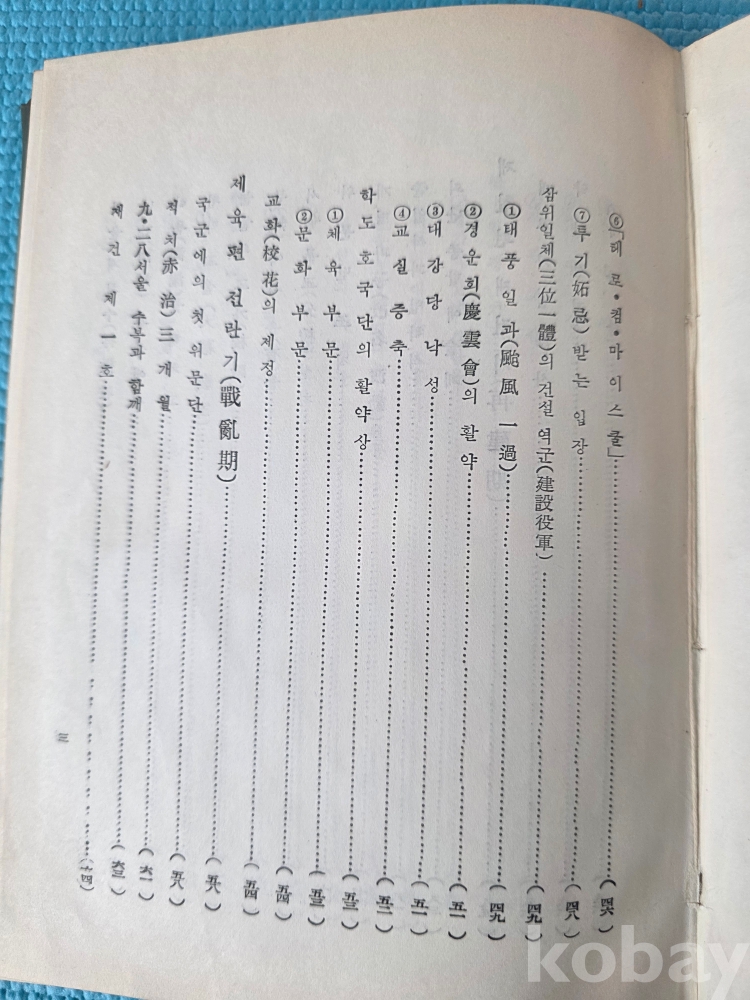 ⑥「헤로·켐·마이스쿨」……(四六)
⑦투기(妬忌) 받는 입장……(四八)
삼위일체(三位一體)의 건설 역군(建設役軍)……(四九)
①태풍일과(颱風一過)……(四九)
②경운회(慶雲會)의 활약……(五一)
③대강당 낙성……(五一)
④교실증축……(五二)
학도호국단의 활약상……(五三)
①체육부문……(五三)
②문화부문……(五四)
교화(校花)의 제정……(五四)
제 육 편 전란기(戰亂期)……(五八)
국군에의 첫 위문단……(五八)
적치(赤治) 三개월……(六一)
九·二八서울 수복과 함께……(六三)
재건 제一호……(六四)
三
kobay